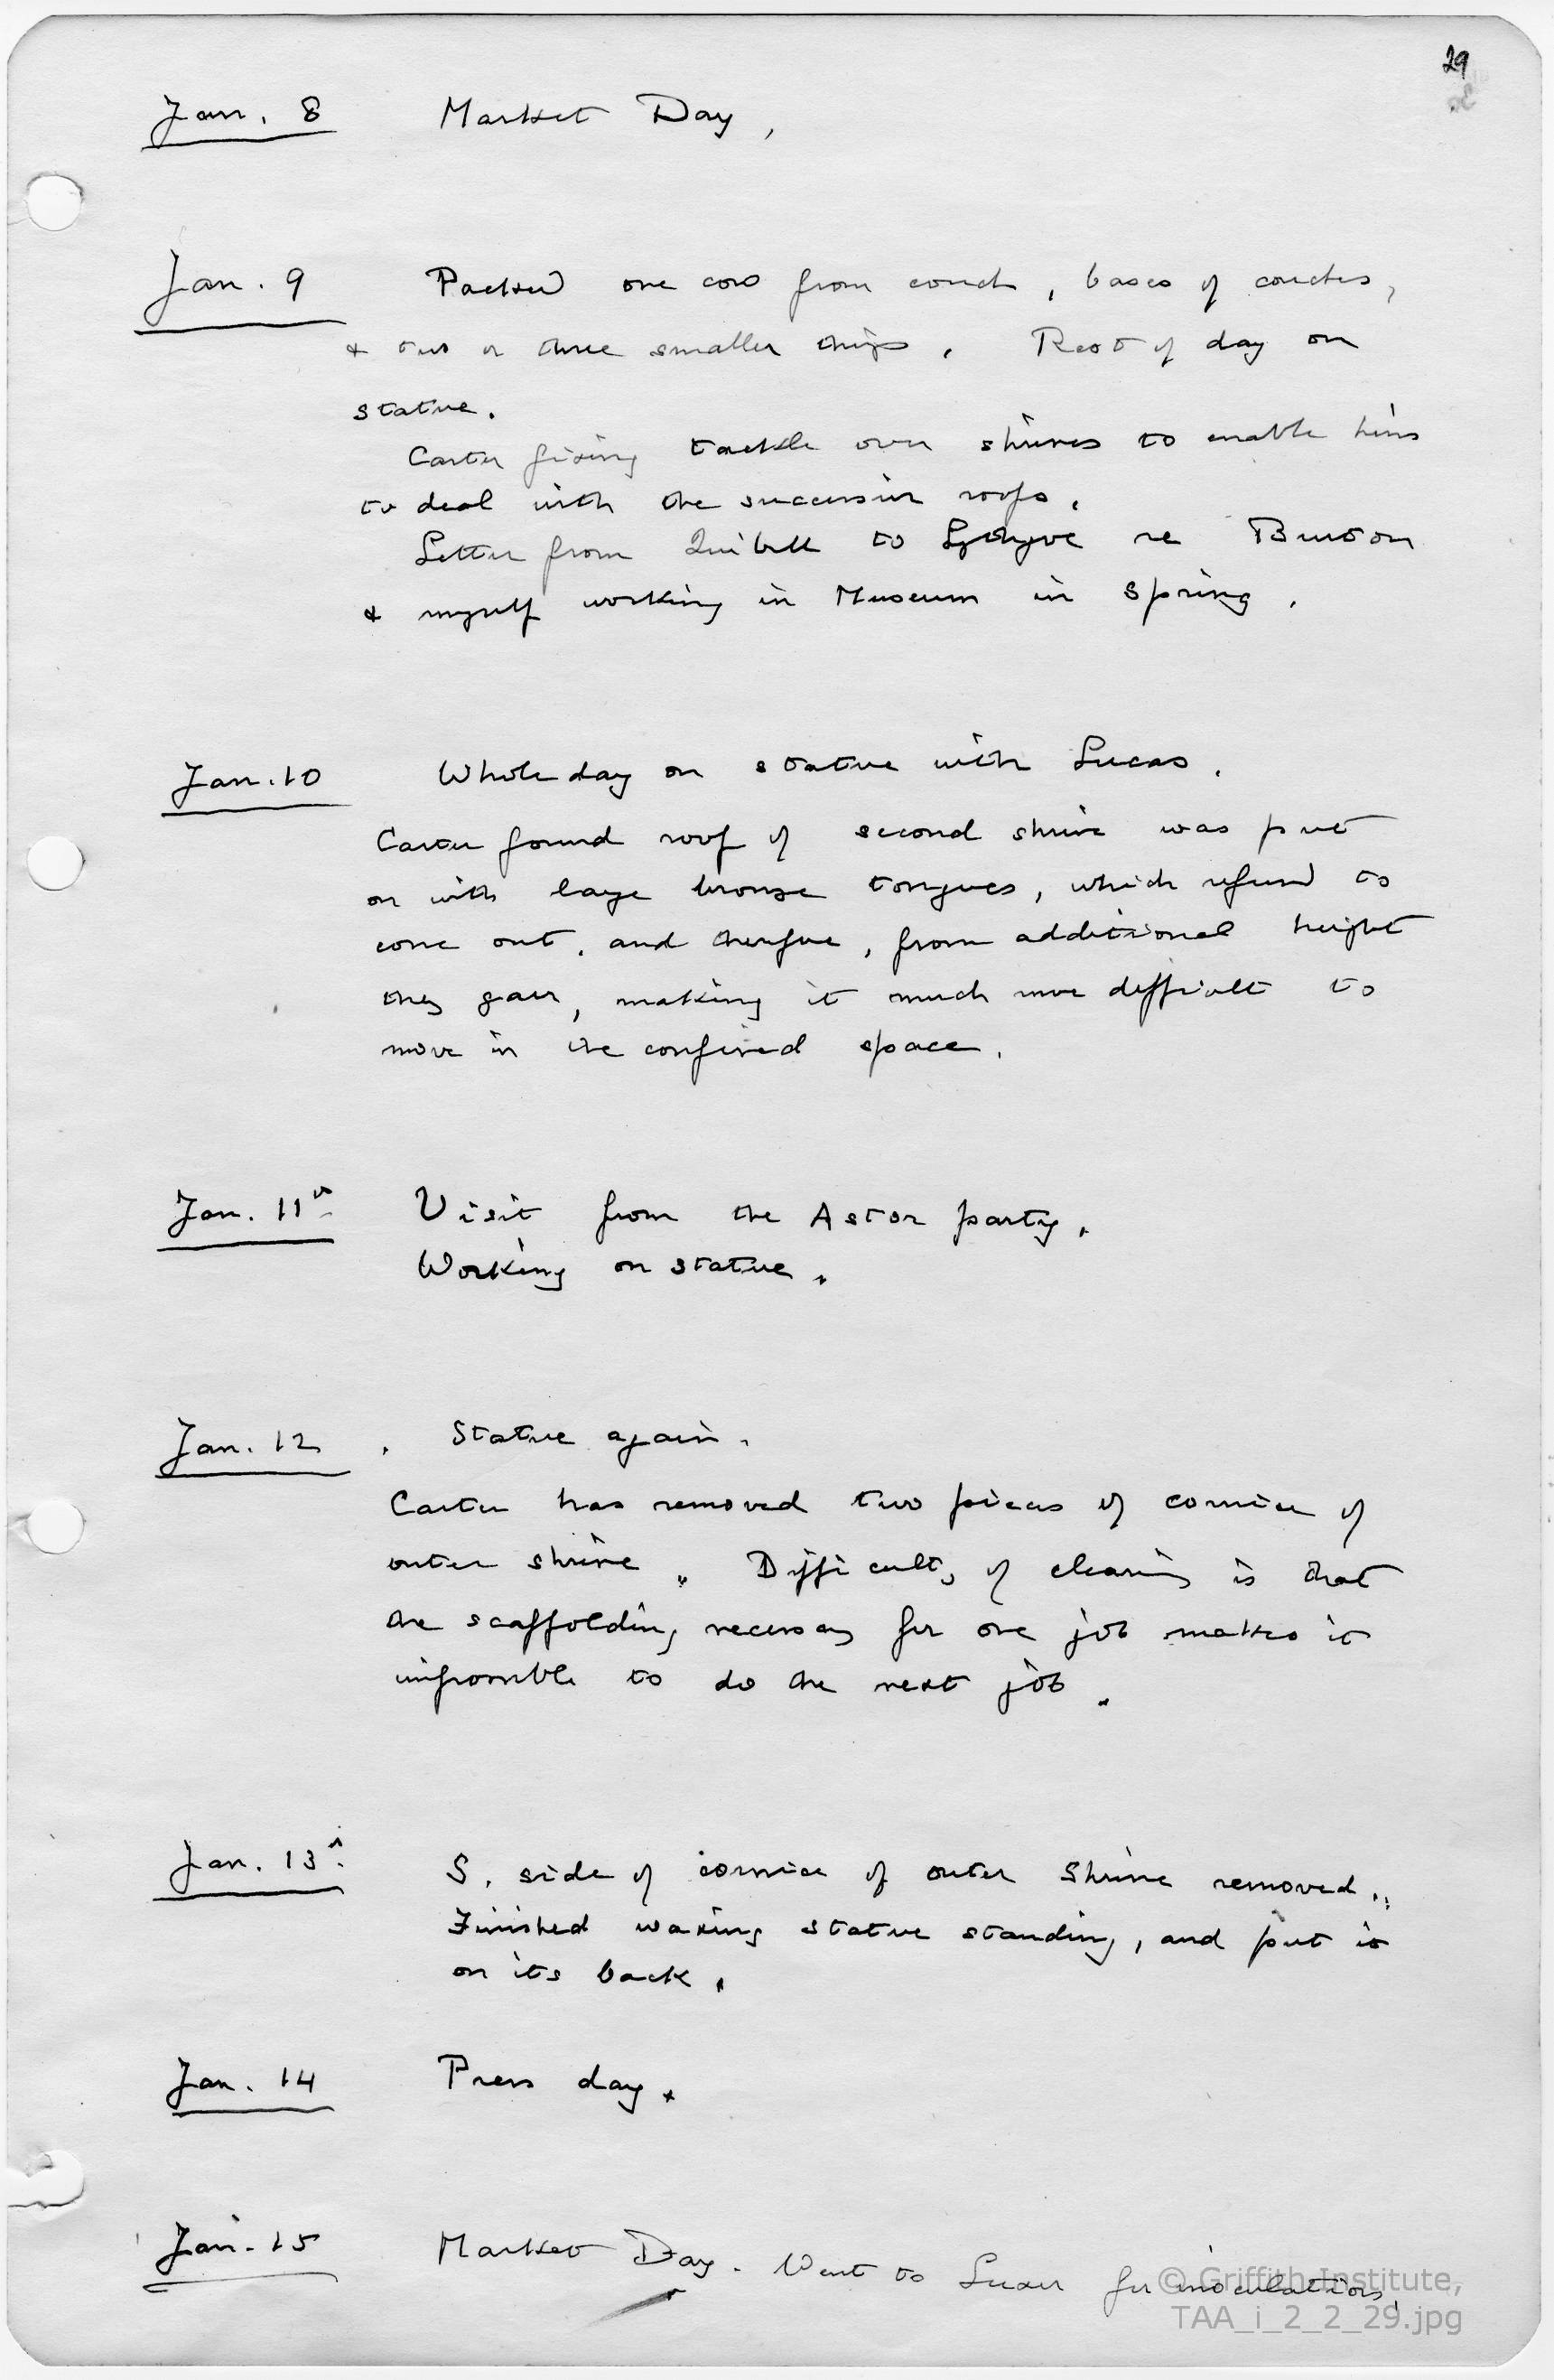 29
Jan. 8 Market Day.
Jan. 9 Packed one cow from couch, bases of couches,
& two or three smaller things. Rest of day on
statue.
Carter fixing tackle over shrines to enable him
to deal with the successive roofs.
Letter from Quibell to Lythgoe re Burton
& myself working in Museum in Spring.
Jan. 10 Whole day on statue with Lucas.
Carter found roof of second shrine was put
on with large bronze tongues, which refused to
come out, and therefore, from additional height
they gave, making it much more difficult to
move in the confined space.
Jan. 11th Visit from the Astor party.
Working on statue.
Jan. 12. Statue again.
Carter has removed two pieces of cornice of
outer shrine. Difficulty of clearing is that
the scaffolding necessary for one job makes it
impossible to do the next job.
Jan. 13th. S. side of cornice of outer shrine removed.
Finished waxing statue standing, and put it
on its back.
Jan. 14 Press day.
Jan. 15 Market Day. Went to Luxor for inoculation.
© Griffith Institute,
TAA_i_2_2_29.jpg